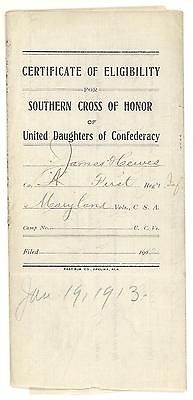 CERTIFICATE OF ELIGIBILITY
FOR
SOUTHERN CROSS OF HONOR
OF
United Daughters of Confederacy
James Hewes
Co. "A" First Reg't Inf
Maryland Vols., C. S. A.
Camp No. U. C. Vs.
Filed 190
POST PUB. CO., OPELIKA, ALA.
Jan 19, 1913.